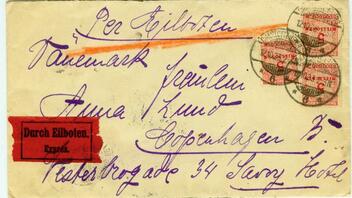 Per Eilboten
Dänemark
Fräulein
Anna Lund
Copenhagen B.
Vesterbrogade 34 Savoy Hotel
Durch Eilboten.
Exprès.